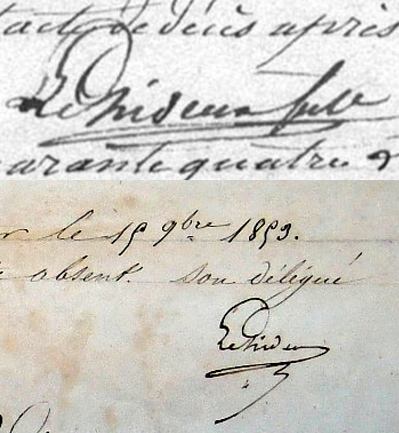 acte de décès après
Le Hideux fils
quarante quatre
le 15 9bre 1853.
absent. son délégué
Le Hideux